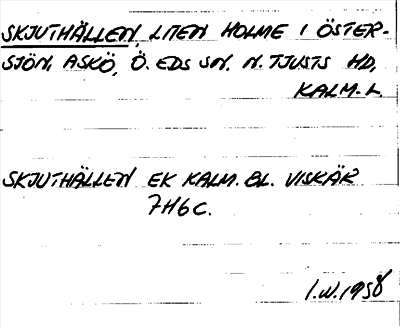 SKJUTHÄLLEN, LITEN HOLME I ÖSTER-
SJÖN, ASKÖ, Ö. EDS SN. N. TJUSTS HD,
KALM. L.
SKJUTHÄLLEN EK KALM. BL. VISKÄR
7H6C.
I.W. 1958